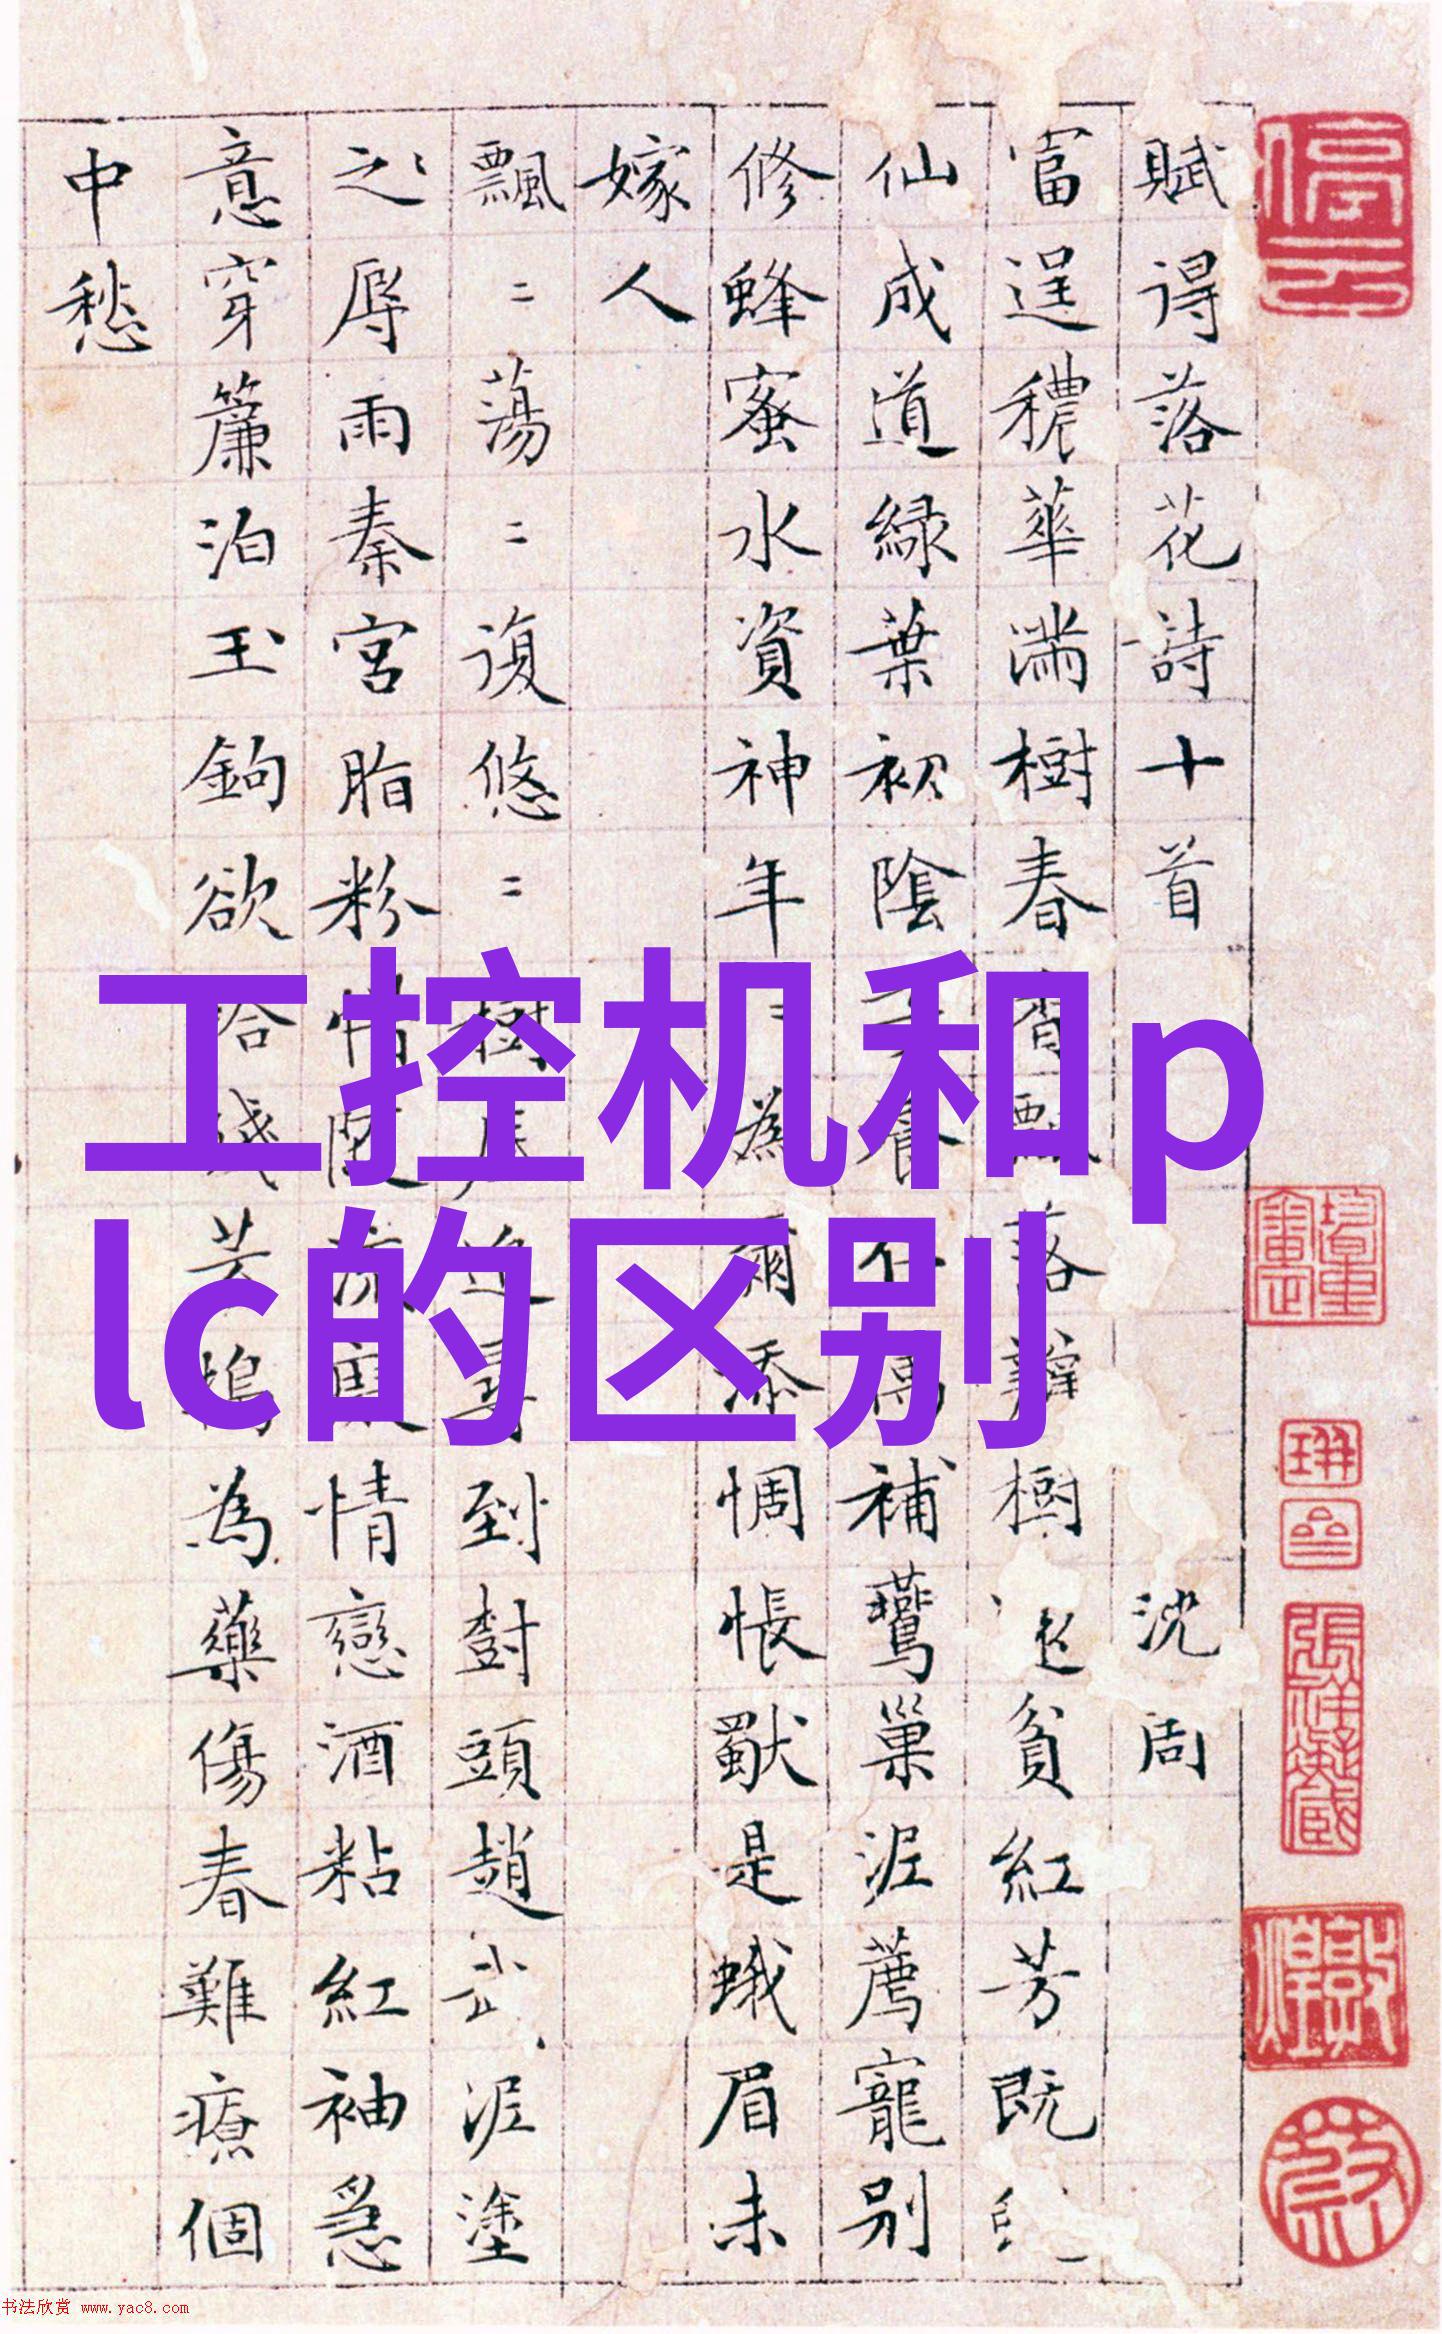 賦得落花詩十首 沈周
富逞穠華滿樹春 落瓣樹 貧紅芳既
仙成道綠葉初陰 補鶯巢泥薦寵別
修蜂蜜水資神年 為爾添惆悵獸是蛾眉未
嫁人
飄〻蕩〻復悠〻樹 到樹頭趙武泥塗
之辱雨秦宮脂粉惜 情戀酒粘紅袖急
意穿簾泊玉鉤欲拾 芳 為藥傷春難療個
中愁
工控机和p
lc的区别
书法欣赏 www.yac8.com